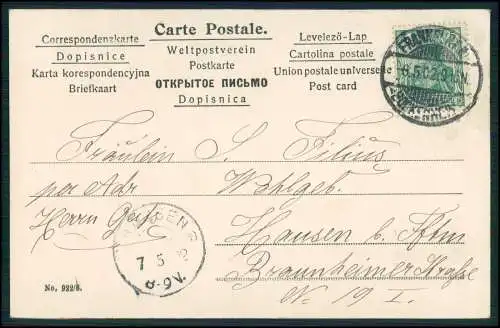 Carte Postale.
Correspondenzkarte
Dopisnice
Karta korespondencyjna
Briefkaart
Weltpostverein
Postkarte
ОТКРЫТОЕ ПИСЬМО
Dopisnica
Levelező-Lap
Cartolina postale
Union postale universelle
Post card
FRANKFURT
Fräulein S. Filius
per Adr Wohlgeb.
Herrn
Hausen b. Ffm
Praunheimer Straße
No 19 I.
HAUSEN
7 5
8-9V.
No. 922/8.